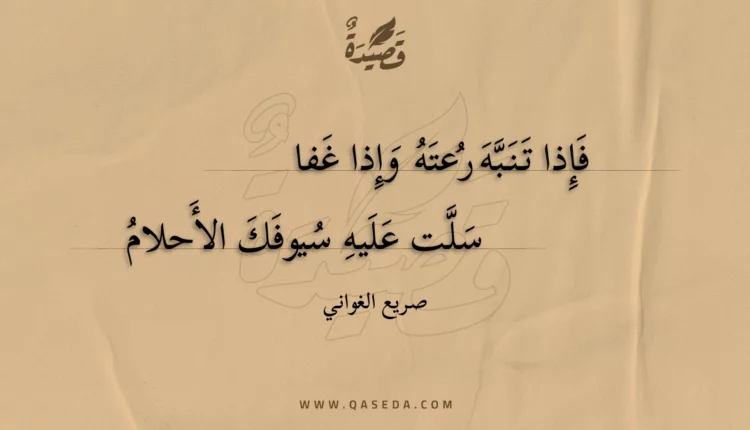 قَصِيدَةٌ
فَإِذا تَنَبَّهَ رُعتَهُ وَإِذا غَفا
سَلَّت عَلَيهِ سُيوفَكَ الأَحلامُ
صريع الغواني
WWW.QASEDA.COM